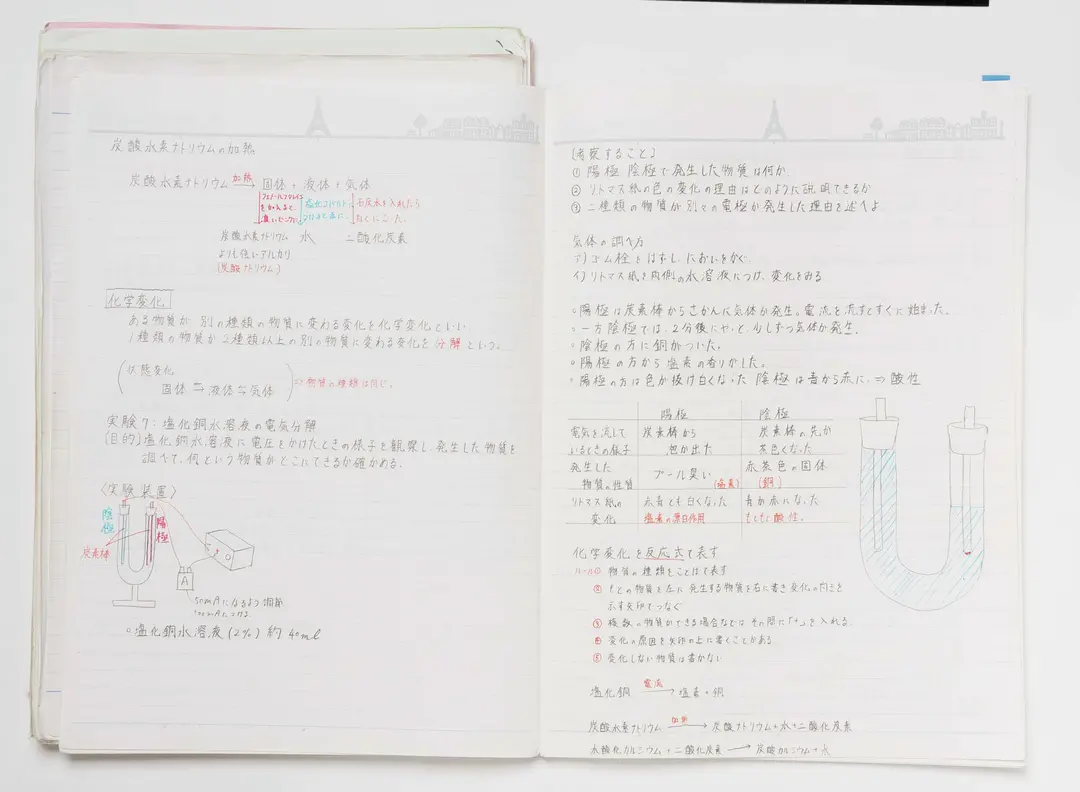 炭酸水素ナトリウムの加熱
炭酸水素ナトリウム 加熱→ 固体 + 液体 + 気体
フェノールフタレイン
を加えると
濃いピンクに
塩化コバルト
つけると赤に
石灰水を入れたら
白くにごった。
炭酸水素ナトリウム
よりも強いアルカリ
(炭酸ナトリウム)
水
二酸化炭素
化学変化
ある物質が 別の種類の物質に変わる変化を化学変化といい
1種類の物質が2種類以上の別の物質に変わる変化を 分解 という。
状態変化
固体 ⇆ 液体 ⇆ 気体
⇒物質の種類は同じ。
実験7:塩化銅水溶液の電気分解
[目的]塩化銅水溶液に電圧をかけたときの様子を観察し、発生した物質を
調べて、何という物質がどこにできるか確かめる。
〈実験装置〉
陰極
陽極
炭素棒
A
50mAになるよう調節
○塩化銅水溶液(2%) 約40ml
[考察すること]
① 陽極 陰極で発生した物質は何か
② リトマス紙の色の変化の理由はどのように説明できるか
③ 二種類の物質が別々の電極が発生した理由を述べよ
気体の調べ方
ア)ゴム栓をはずし、においをかぐ。
イ)リトマス紙を内側の水溶液につけ、変化をみる
○陽極は炭素棒からさかんに気体が発生。電流を流すとすぐに始まった。
○一方陰極では、2分後にやっと、少しずつ気体が発生。
○陰極の方に銅がついた。
○陽極の方から塩素の香りがした。
○陽極の方は色が抜け白くなった 陰極は青から赤に。⇒ 酸性
陽極 陰極
電気を流して
いるときの様子
炭素棒から
泡が出た
炭素棒の先が
茶色くなった
発生した
物質の性質
プール臭い
(塩素)
赤茶色の固体
(銅)
リトマス紙の
変化
赤青とも白くなった
塩素の漂白作用
青が赤になった
もともと酸性。
化学変化を反応式で表す
ルール① 物質の種類をことばで表す
② もとの物質を左に発生する物質を右に書き変化の向きを
示す矢印でつなぐ
③ 複数の物質ができる場合などは その間に「+」を入れる。
④ 変化の原因を矢印の上に書くことがある
⑤ 変化しない物質は書かない
塩化銅 電流→ 塩素 + 銅
炭酸水素ナトリウム 加熱→ 炭酸ナトリウム+水+二酸化炭素
水酸化カルシウム + 二酸化炭素 → 炭酸カルシウム+水